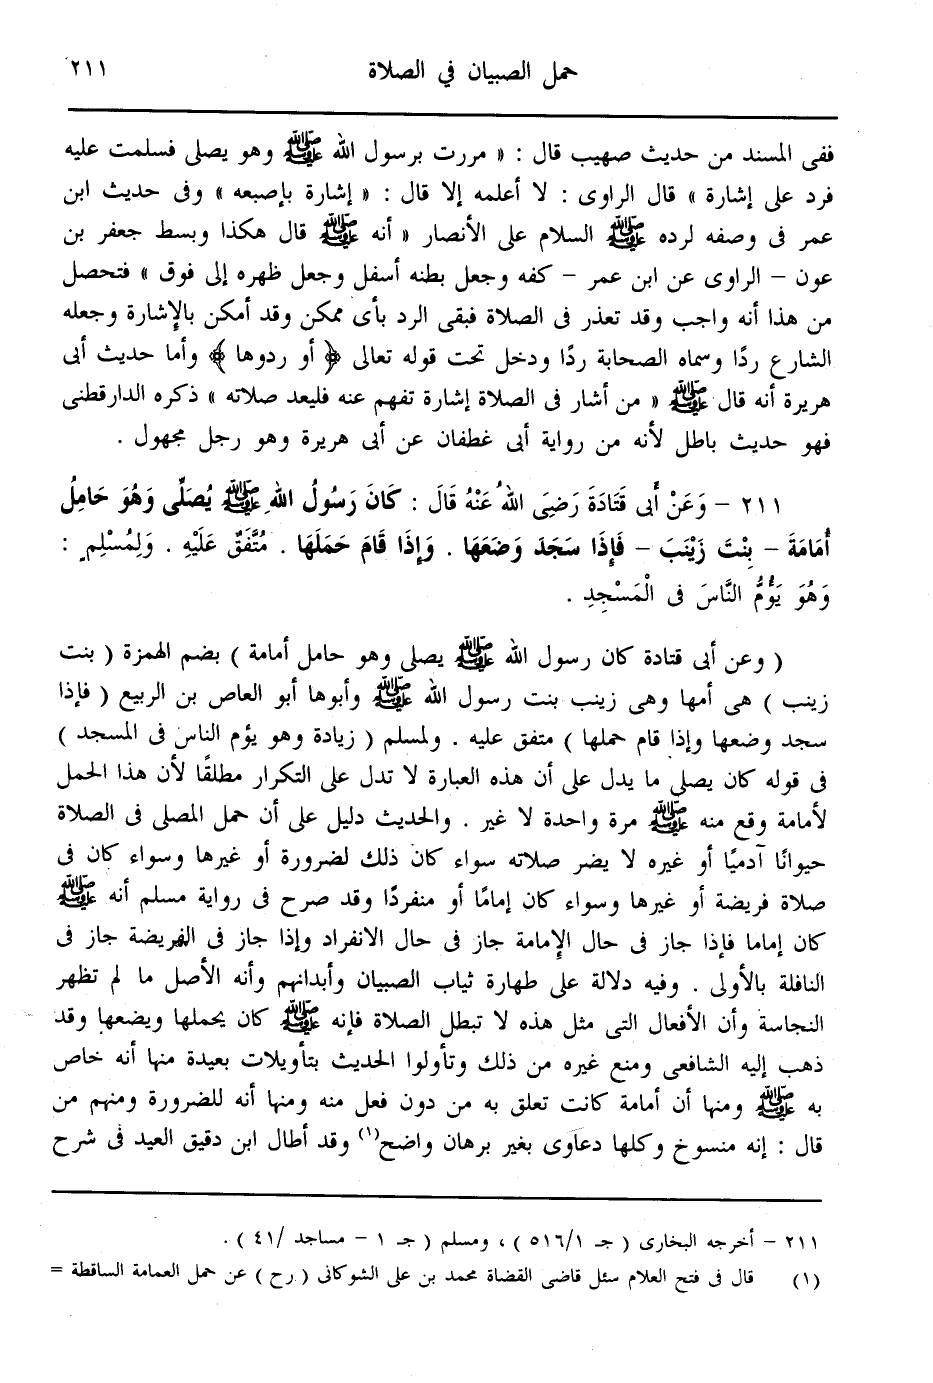 حمل الصبيان في الصلاة ٢١١
ففى المسند من حديث صهيب قال : « مررت برسول الله ﷺ وهو يصلى فسلمت عليه
فرد على إشارة » قال الراوى : لا أعلمه إلا قال : « إشارة بإصبعه » وفى حديث ابن
عمر فى وصفه لرده ﷺ السلام على الأنصار « أنه ﷺ قال هكذا وبسط جعفر بن
عون – الراوى عن ابن عمر – كفه وجعل بطنه أسفل وجعل ظهره إلى فوق » فتحصل
من هذا أنه واجب وقد تعذر فى الصلاة فبقى الرد بأى ممكن وقد أمكن بالإشارة وجعله
الشارع ردًا وسماه الصحابة ردًا ودخل تحت قوله تعالى ﴿ أو ردوها ﴾ وأما حديث أبى
هريرة أنه قال ﷺ « من أشار فى الصلاة إشارة تفهم عنه فليعد صلاته » ذكره الدارقطنى
فهو حديث باطل لأنه من رواية أبى غطفان عن أبى هريرة وهو رجل مجهول .
٢١١ – وَعَنْ أَبى قَتَادَةَ رَضِىَ اللهُ عَنْهُ قَالَ : كَانَ رَسُولُ اللهِ ﷺ يُصَلِّى وَهُوَ حَامِلُ
أُمَامَةَ – بِنْتَ زَيْنَبَ – فَإِذَا سَجَدَ وَضَعَهَا . وَإِذَا قَامَ حَمَلَهَا . مُتَّفَقٌ عَلَيْهِ . وَلِمُسْلِمٍ :
وَهُوَ يَؤُمُّ النَّاسَ فى الْمَسْجِدِ .
( وعن أبى قتادة كان رسول الله ﷺ يصلى وهو حامل أمامة ) بضم الهمزة ( بنت
زينب ) هى أمها وهى زينب بنت رسول الله ﷺ وأبوها أبو العاص بن الربيع ( فإذا
سجد وضعها وإذا قام حملها ) متفق عليه . ولمسلم ( زيادة وهو يؤم الناس فى المسجد )
فى قوله كان يصلى ما يدل على أن هذه العبارة لا تدل على التكرار مطلقًا لأن هذا الحمل
لأمامة وقع منه ﷺ مرة واحدة لا غير . والحديث دليل على أن حمل المصلى فى الصلاة
حيوانًا آدميًا أو غيره لا يضر صلاته سواء كان ذلك لضرورة أو غيرها وسواء كان فى
صلاة فريضة أو غيرها وسواء كان إمامًا أو منفردًا وقد صرح فى رواية مسلم أنه ﷺ
كان إماما فإذا جاز فى حال الإمامة جاز فى حال الانفراد وإذا جاز فى الفريضة جاز فى
النافلة بالأولى . وفيه دلالة على طهارة ثياب الصبيان وأبدانهم وأنه الأصل ما لم تظهر
النجاسة وأن الأفعال التى مثل هذه لا تبطل الصلاة فإنه ﷺ كان يحملها ويضعها وقد
ذهب إليه الشافعى ومنع غيره من ذلك وتأولوا الحديث بتأويلات بعيدة منها أنه خاص
به ﷺ ومنها أن أمامة كانت تعلق به من دون فعل منه ومنها أنه للضرورة ومنهم من
قال : إنه منسوخ وكلها دعاوى بغير برهان واضح(١) وقد أطال ابن دقيق العيد فى شرح
٢١١ – أخرجه البخارى ( جـ ٥١٦/١ ) ، ومسلم ( جـ ١ – مساجد /٤١ ) .
(١) قال فى فتح العلام سئل قاضى القضاة محمد بن على الشوكانى ( رح ) عن حمل العمامة الساقطة =